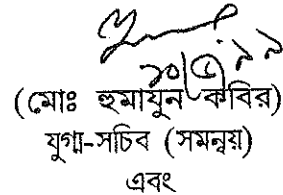 (মোঃ হুমায়ুন কবির)
যুগ্ম-সচিব (সমন্বয়)
এবং